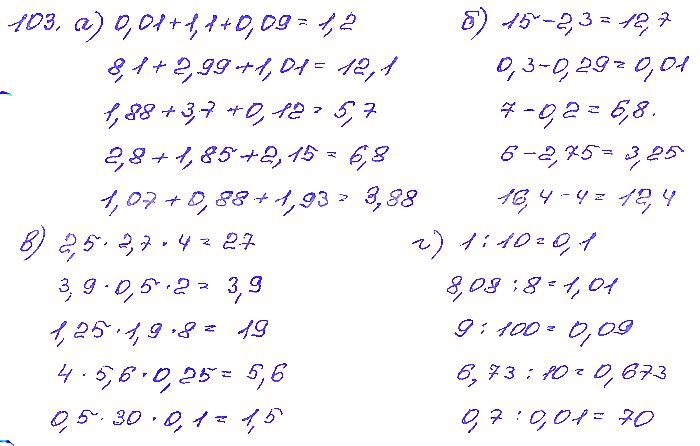 103. а) 0,01+1,1+0,09=1,2
8,1+2,99+1,01=12,1
1,88+3,7+0,12=5,7
2,8+1,85+2,15=6,8
1,07+0,88+1,93=3,88
б) 15-2,3=12,7
0,3-0,29=0,01
7-0,2=6,8.
6-2,75=3,25
16,4-4=12,4
в) 2,5·2,7·4=27
3,9·0,5·2=3,9
1,25·1,9·8=19
4·5,6·0,25=5,6
0,5·30·0,1=1,5
г) 1:10=0,1
8,08:8=1,01
9:100=0,09
6,73:10=0,673
0,7:0,01=70